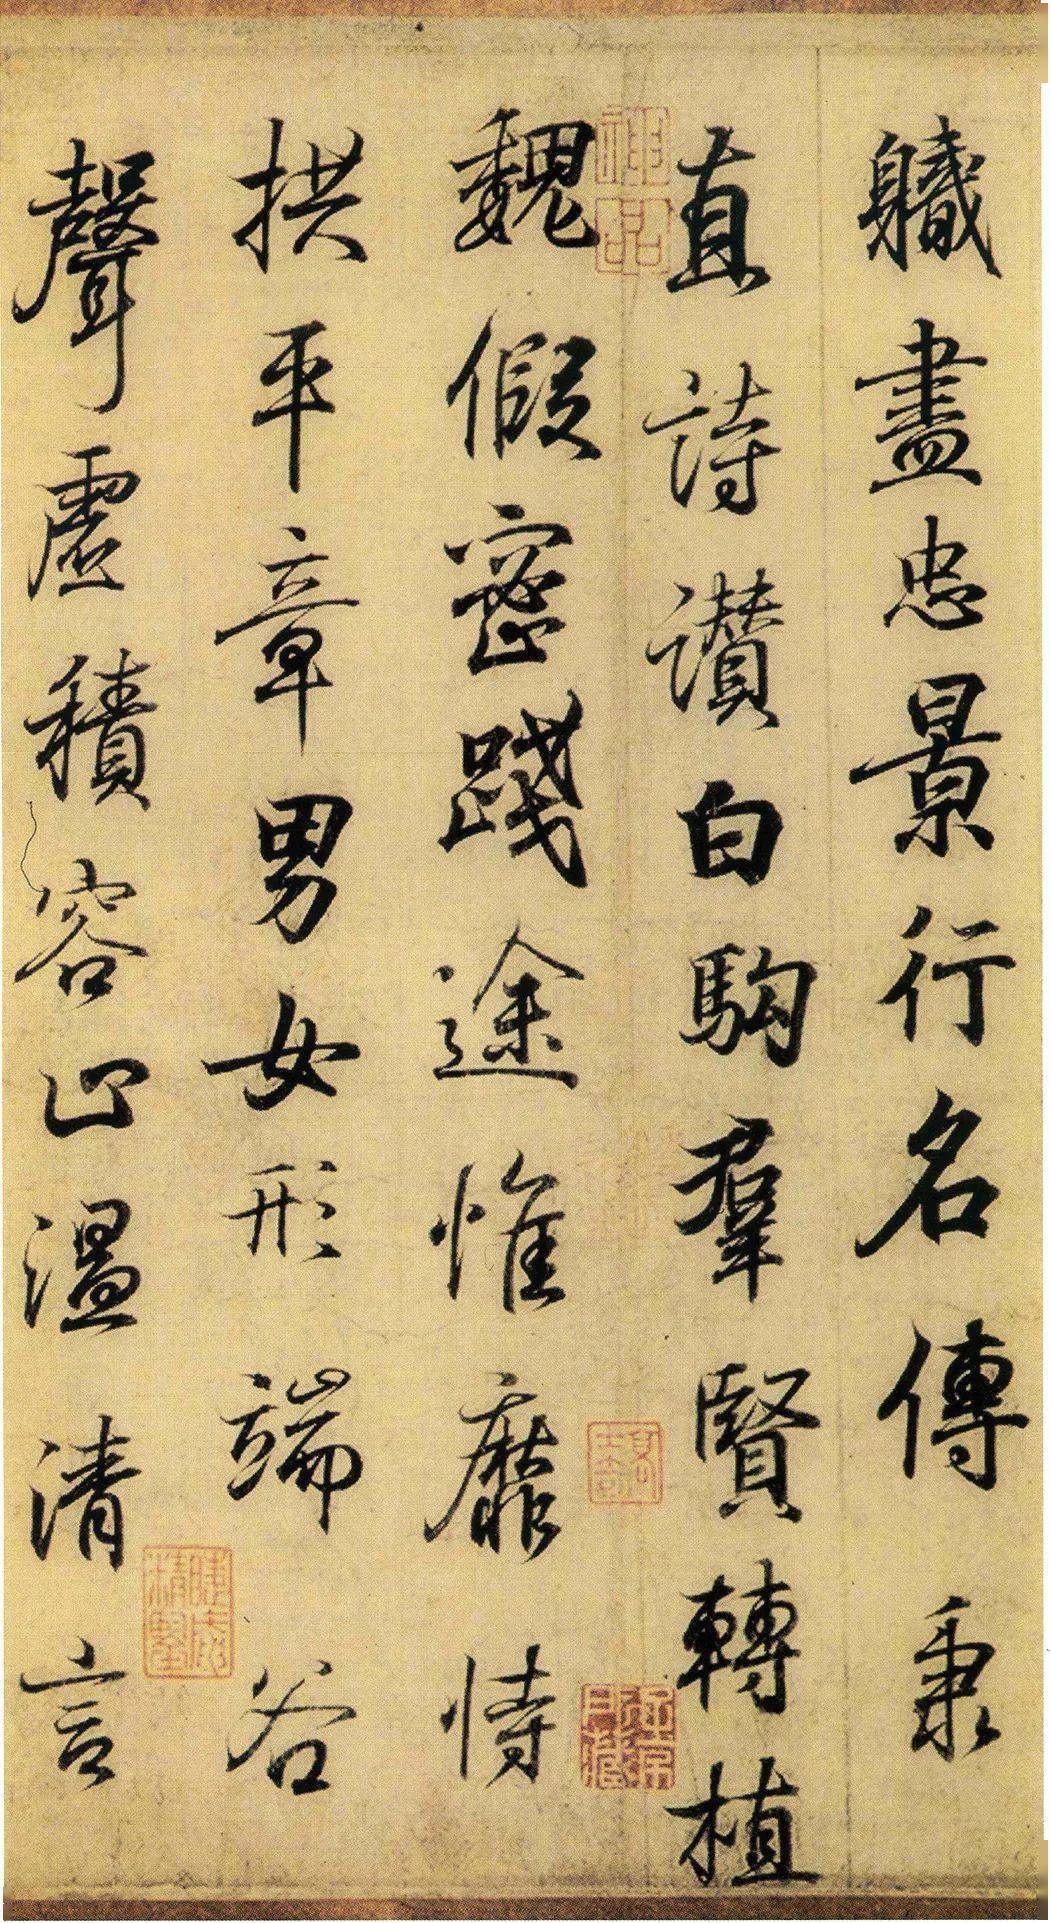 軄盡忠景行名傳秉
直詩讃白駒羣賢轉植
魏假密踐途惟靡恃
拱平章男女形端谷
聲虛積容止溫清言
神品